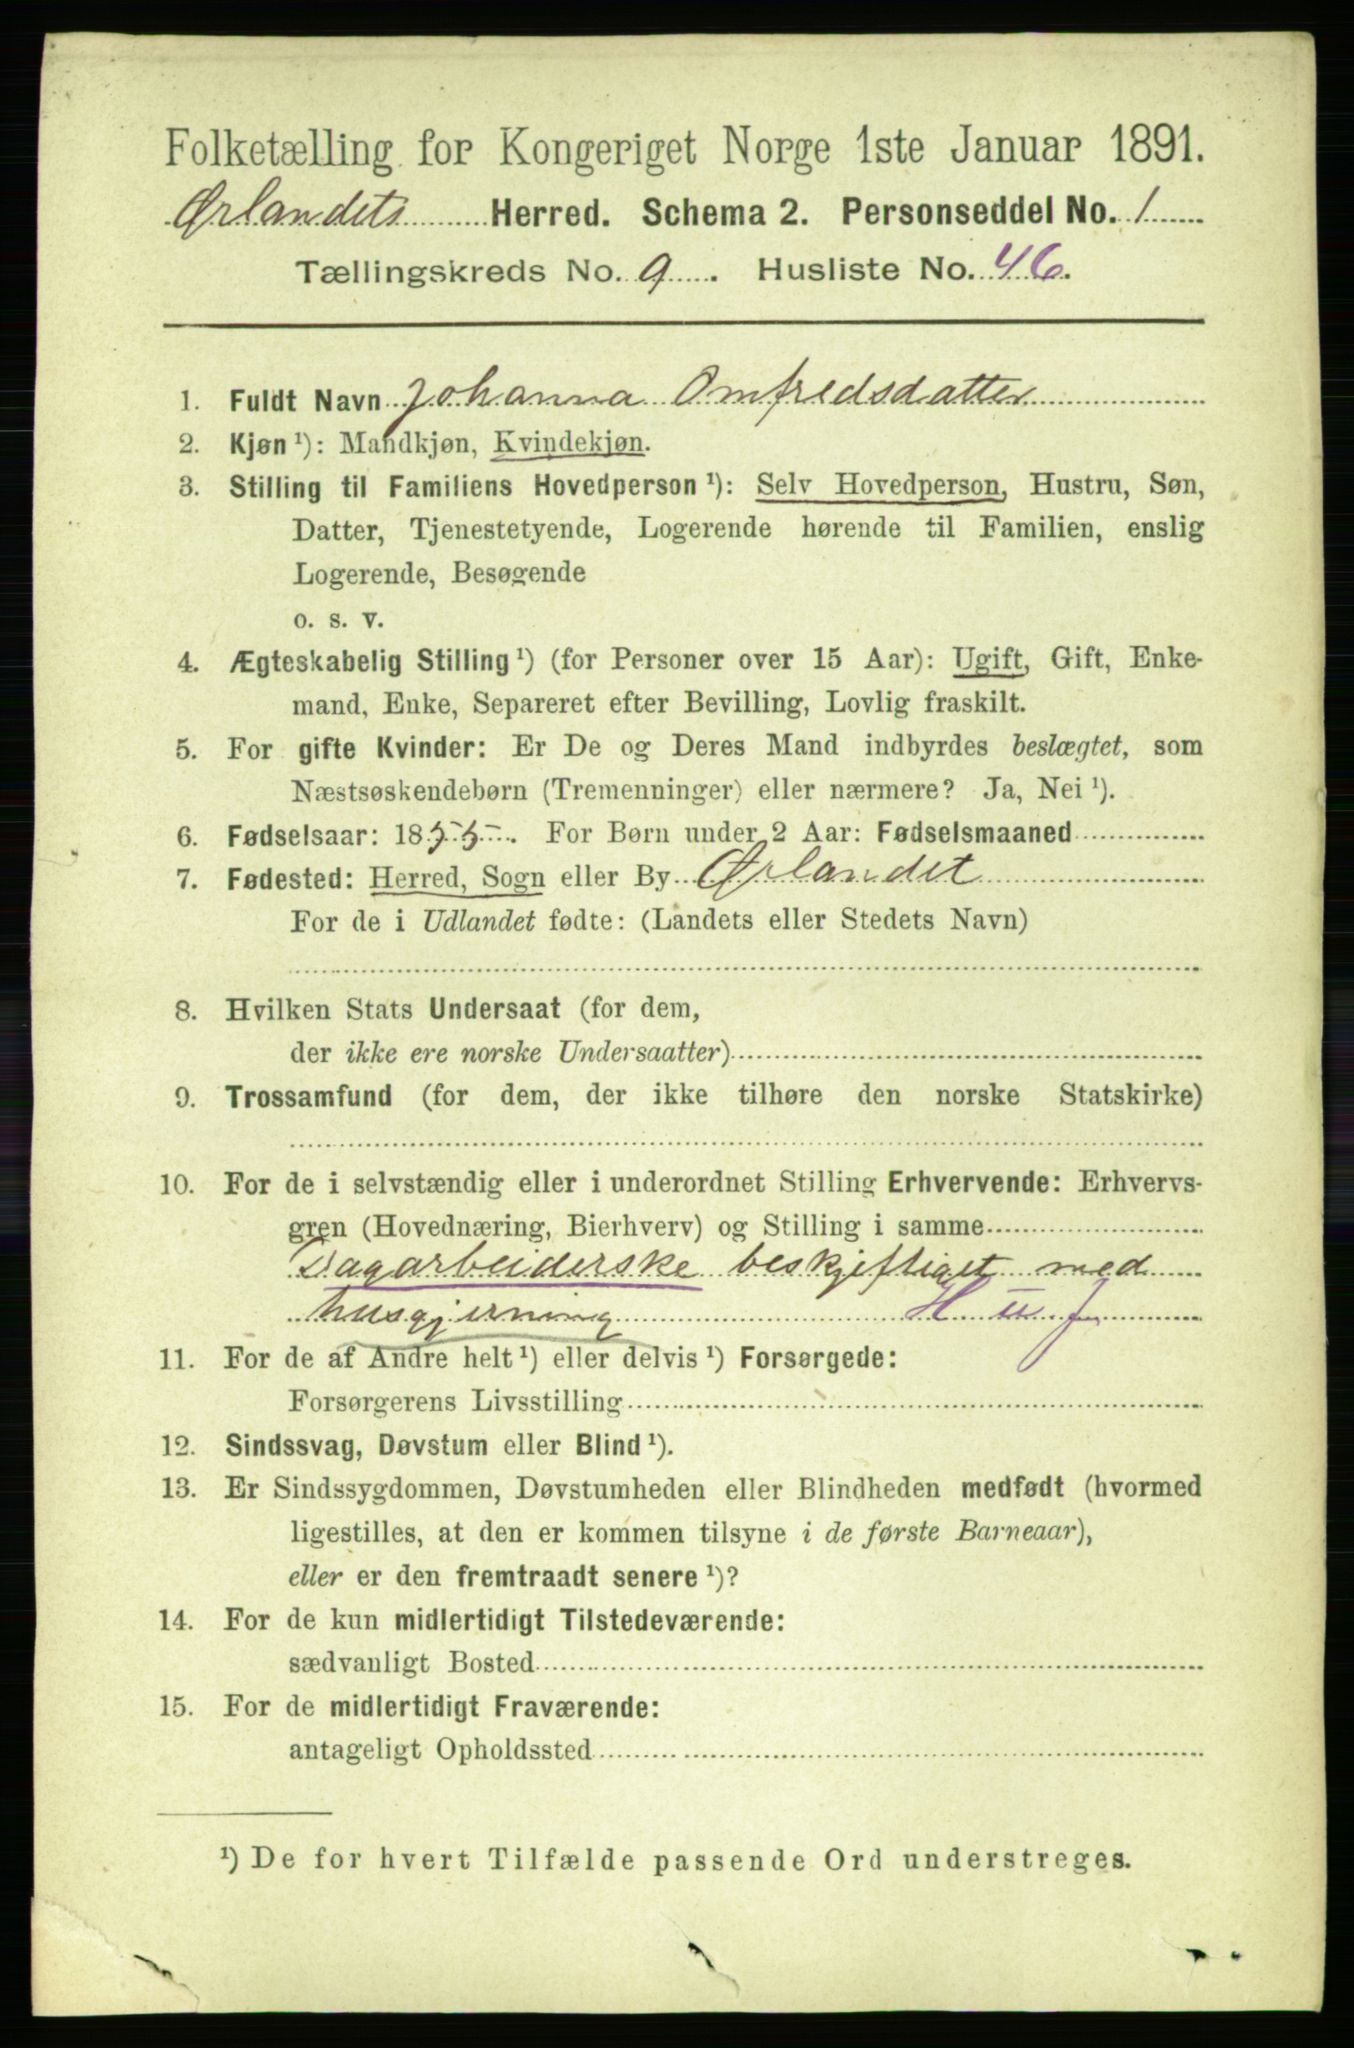 Folketælling for Kongeriget Norge 1ste Januar 1891.
Ørlandets Herred. Schema 2. Personseddel No. 1
Tællingskreds No. 9. Husliste No. 46.
1. Fuldt Navn Johanna Omfredsdatter
2. Kjøn ¹): Mandkjøn, Kvindekjøn.
3. Stilling til Familiens Hovedperson ¹): Selv Hovedperson, Hustru, Søn,
Datter, Tjenestetyende, Logerende hørende til Familien, enslig
Logerende, Besøgende
o. s. v.
4. Ægteskabelig Stilling ¹) (for Personer over 15 Aar): Ugift, Gift, Enke-
mand, Enke, Separeret efter Bevilling, Lovlig fraskilt.
5. For gifte Kvinder: Er De og Deres Mand indbyrdes beslægtet, som
Næstsøskendebørn (Tremenninger) eller nærmere? Ja, Nei ¹).
6. Fødselsaar: 1855. For Børn under 2 Aar: Fødselsmaaned
7. Fødested: Herred, Sogn eller By Ørlandet
For de i Udlandet fødte: (Landets eller Stedets Navn)
8. Hvilken Stats Undersaat (for dem,
der ikke ere norske Undersaatter)
9. Trossamfund (for dem, der ikke tilhøre den norske Statskirke)
10. For de i selvstændig eller i underordnet Stilling Erhvervende: Erhvervs-
gren (Hovednæring, Bierhverv) og Stilling i samme
Dagarbeiderske beskjeftiget med
husgjerning H u J
11. For de af Andre helt ¹) eller delvis ¹) Forsørgede:
Forsørgerens Livsstilling
12. Sindssvag, Døvstum eller Blind ¹).
13. Er Sindssygdommen, Døvstumheden eller Blindheden medfødt (hvormed
ligestilles, at den er kommen tilsyne i de første Barneaar),
eller er den fremtraadt senere ¹)?
14. For de kun midlertidigt Tilstedeværende:
sædvanligt Bosted
15. For de midlertidigt Fraværende:
antageligt Opholdssted
¹) De for hvert Tilfælde passende Ord understreges.